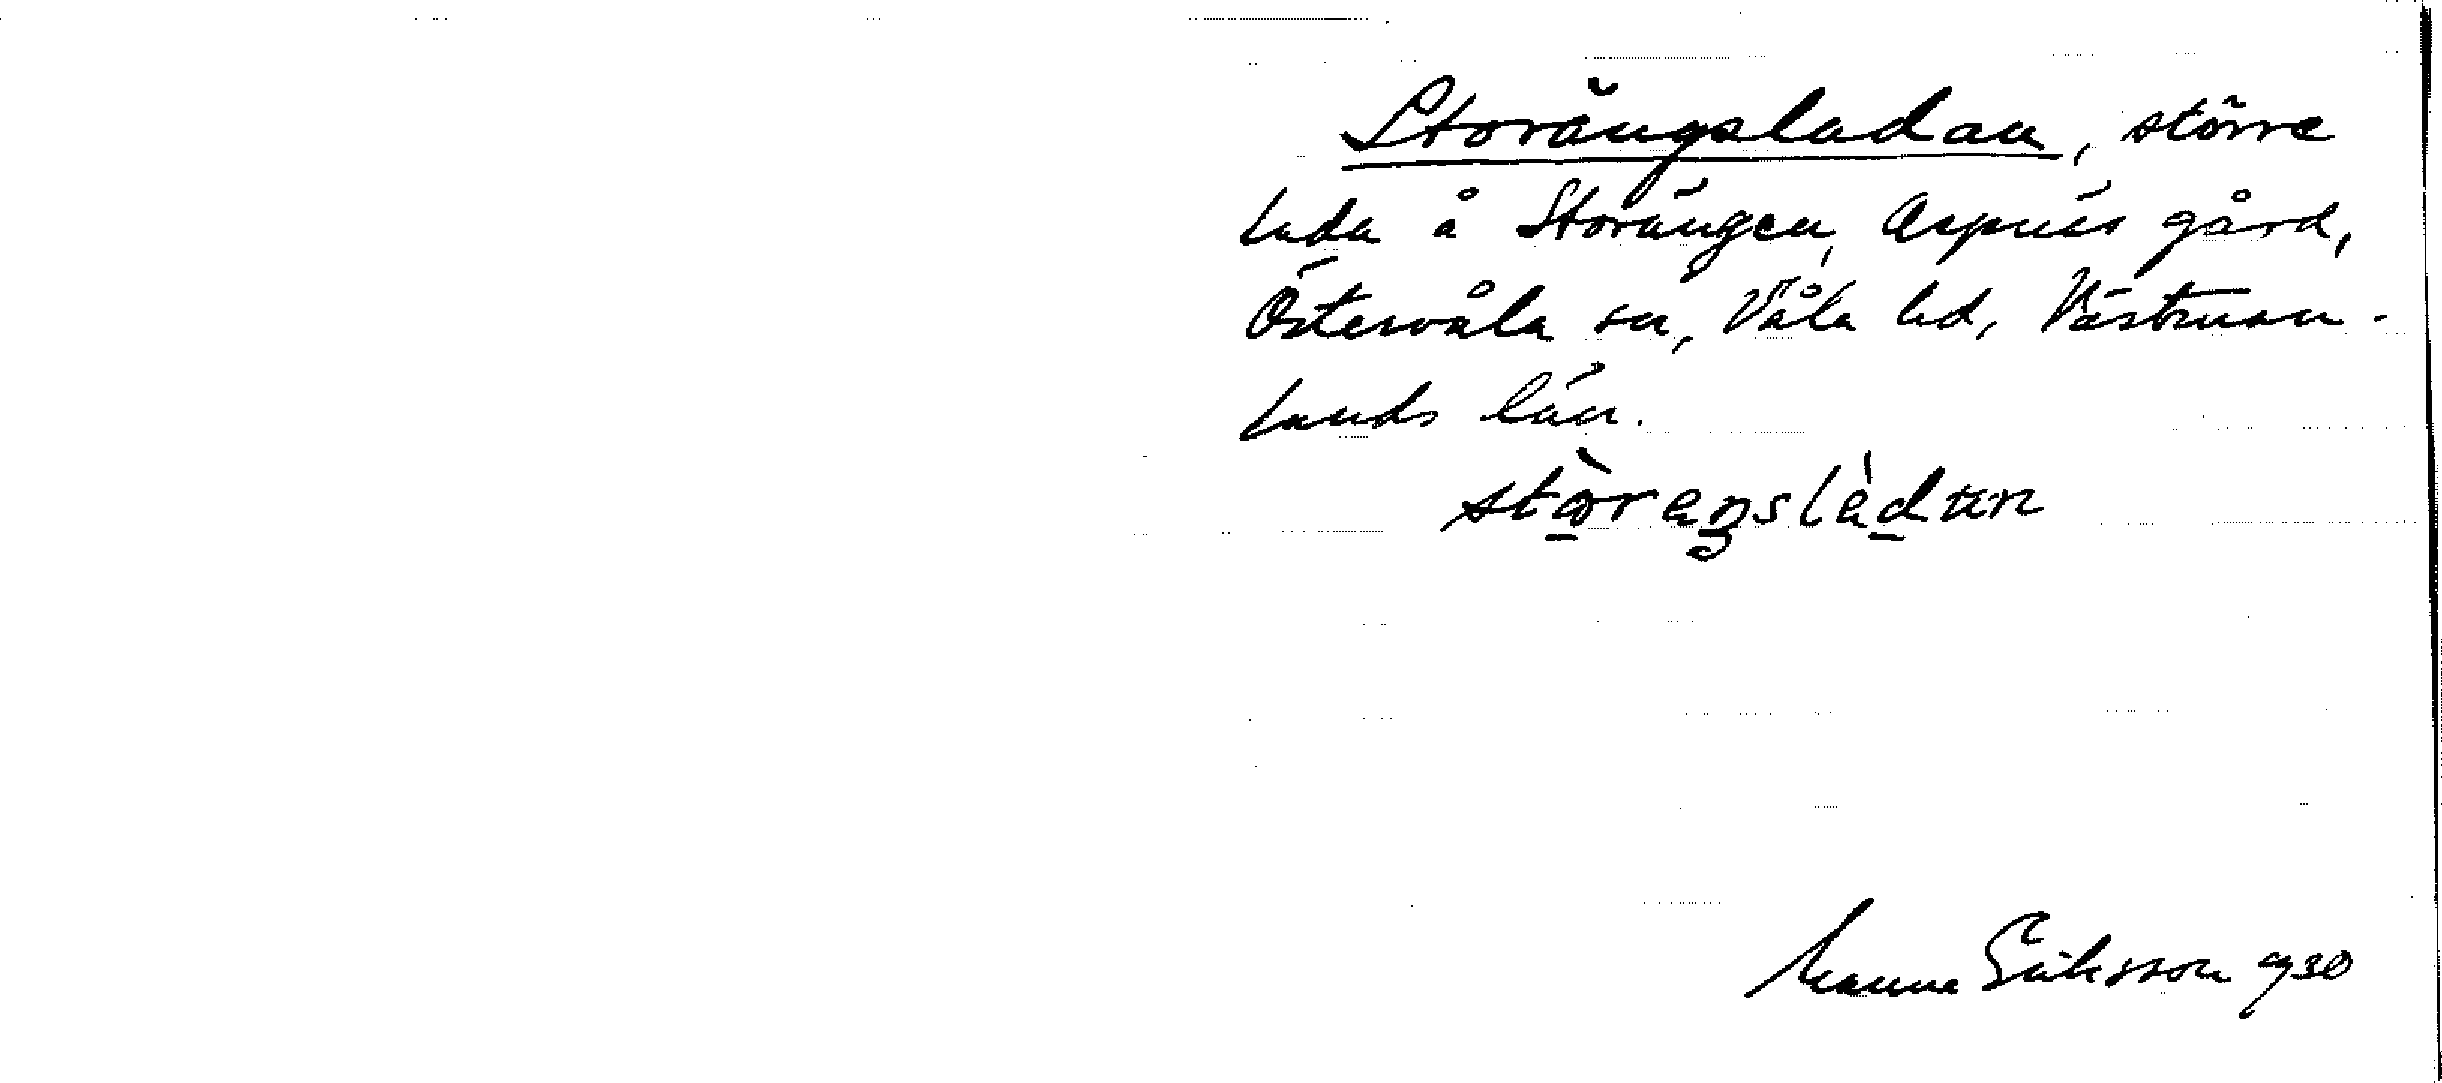 Storängsladan, större
lada å Storängen, Aspnäs gård,
Östervåla sn, Våla hd, Västman-
lands län.
Manne Eriksson 1930